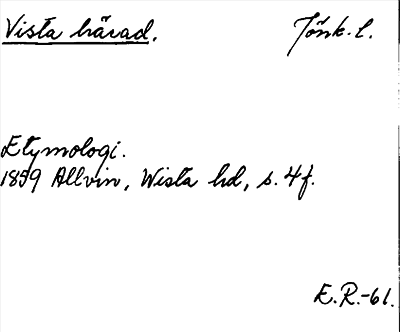 Vista härad. Jönk. l.
Etymologi.
1859 Allvin, Wista hd, s. 4 f.
E.R.-61.